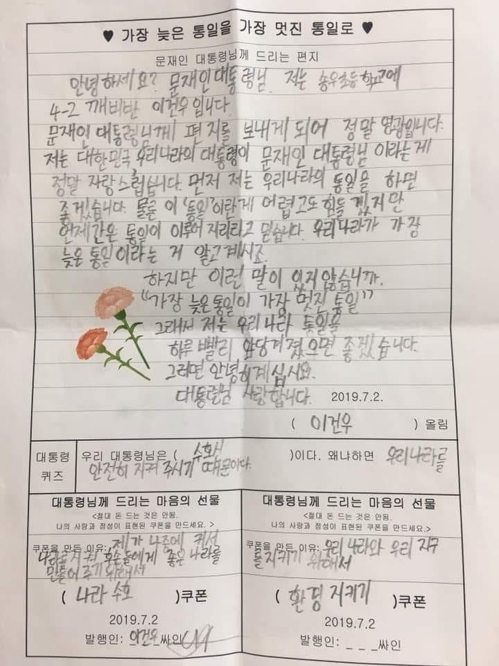 ♥ 가장 늦은 통일을 가장 멋진 통일로 ♥
문재인 대통령님께 드리는 편지
안녕하세요? 문재인대통령님. 저는 송우초등학교에
4-2 깨비반 이건우입니다.
문재인 대통령님께 편지를 보내게 되어 정말 영광입니다.
저는 대한민국 우리나라의 대통령이 문재인 대통령님 이라는게
정말 자랑스럽습니다. 먼저 저는 우리나라의 통일을 하면
좋겠습니다. 물론 이 '통일'이란게 어렵고도 힘들겠지만
언제간은 통일이 이루어지리라고 믿습니다. 우리나라가 가장
늦은 통일이라는 거 알고계시죠.
하지만 이런 말이 있지 않습니까.
"가장 늦은 통일이 가장 멋진 통일"
그래서 저는 우리나라 통일을
하루 빨리 앞당겨졌으면 좋겠습니다.
그러면 안녕히계십시요.
대통령님 사랑합니다.
2019.7.2.
( 이건우 ) 올림
대통령 퀴즈
우리 대통령님은 ( 수호신 )이다. 왜냐하면 우리나라를
안전히 지켜 주시기 때문이다.
대통령님께 드리는 마음의 선물
<절대 돈 드는 것은 안됨.
나의 사랑과 정성이 표현된 쿠폰을 만드세요.>
쿠폰을 만든 이유: 제가 나중에 커서
나라를 지켜 후손들에게 좋은 나라를
만들어 주기 위해서
( 나라 수호 )쿠폰
2019.7.2
발행인: 이건우 싸인
대통령님께 드리는 마음의 선물
<절대 돈 드는 것은 안됨.
나의 사랑과 정성이 표현된 쿠폰을 만드세요.>
쿠폰을 만든 이유: 우리 나라와 우리 지구
를 지키기 위해서
( 환경 지키기 )쿠폰
2019.7.2
발행인: _ _ _싸인